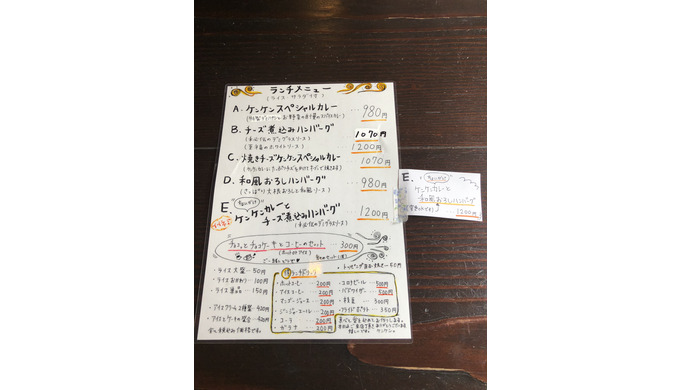 ランチメニュー
(ライス・サラダ付き)
A. ケンケンスペシャルカレー … 980円
B. チーズ煮込みハンバーグ … 1070円
1200円
C. 焼きチーズケンケンスペシャルカレー 1070円
D. 和風おろしハンバーグ … 980円
(さっぱり大根おろしと和風ソース)
E. ケンケンカレーと
チーズ煮込みハンバーグ 1200円
チョコっとチョコケーキとコーヒーのセット … 300円
・トッピング目玉焼き…50円
・ライス大盛…50円
・ライスおかわり…100円
・ライス単品…150円
・アイスクリーム2種盛…420円
・アイスとケーキの盛合…420円
ランチドリンク
・ホットコーヒー…200円
・アイスコーヒー…200円
・マンゴージュース…200円
・ジンジャーエール…200円
・コーラ 200円
・ガラナ 200円
・コロナビール…500円
・バドワイザー…500円
・枝豆…300円
・フライドポテト…350円
E.
ケンケンカレーと
和風おろしハンバーグ
1200円